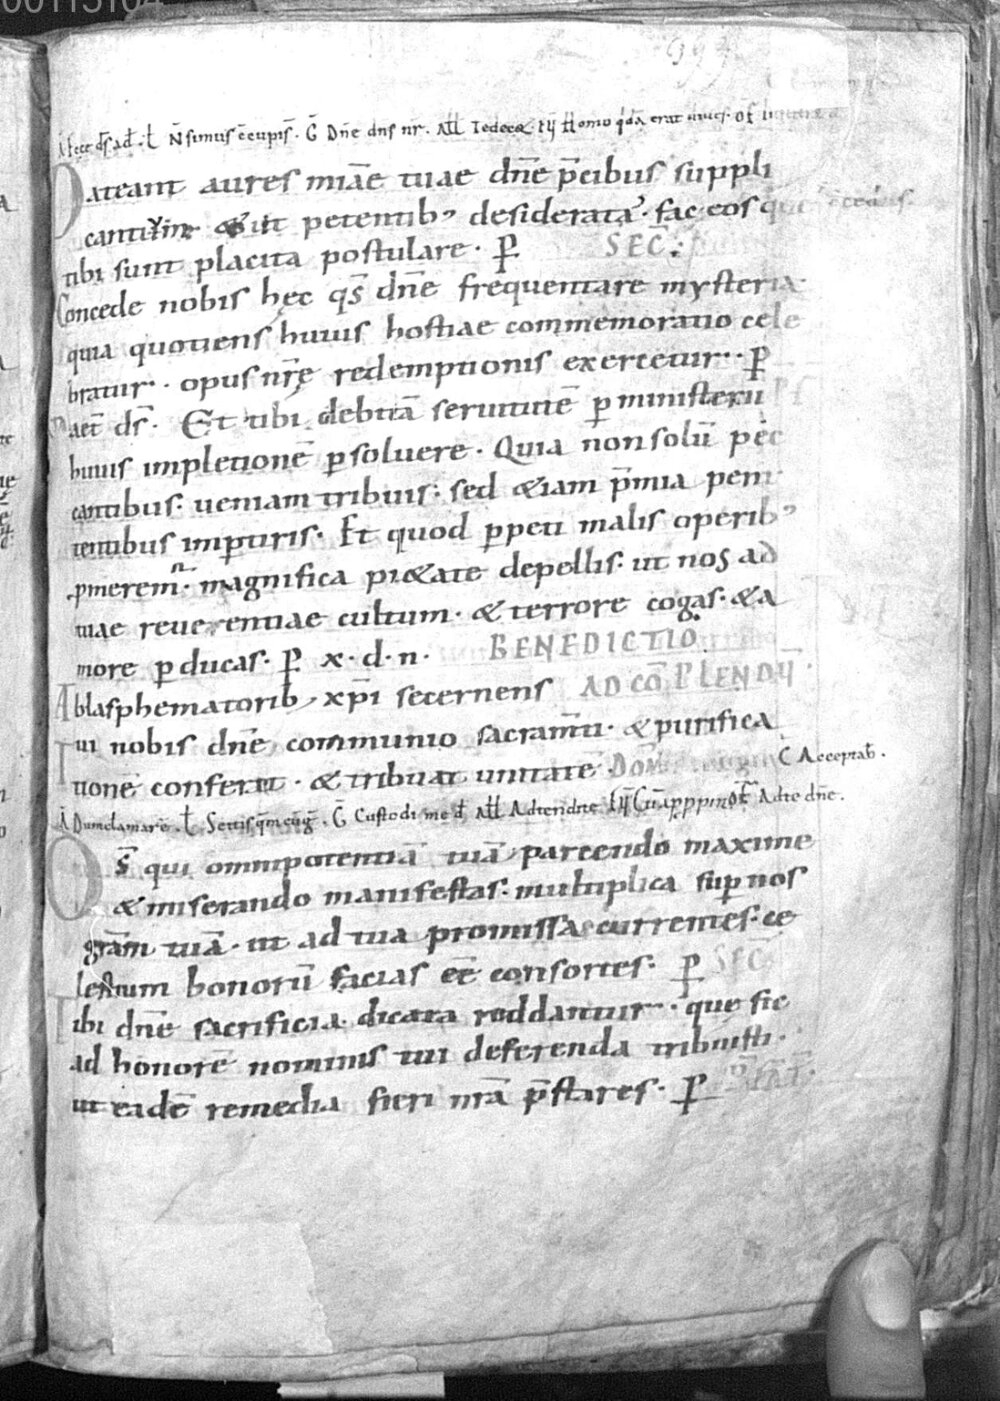 00115104
393
A Ecce ds ad. L N simus c̄cupis̄. G Dn̄e dn̄s nr̄. All̄ Te decet. Eu Homo qd̄a erat diues. Of
Pateant aures mīae tuae dn̄e p̄cibus suppli
cantiū & ut petentib; desiderata. fac eos
tibi sunt placita postulare. P̄ SEC̄.
Concede nobis hęc qs̄ dn̄e frequentare mysteria
quia quotiens huius hostiae commemoratio cele
bratur. opus nr̄ę redemptionis exercetur. P̄
aet̄ ds̄. Et tibi debitā seruitutē p ministerii
huius impletionē psoluere. Quia non solū pec
cantibus. ueniam tribuis. sed &iam p̄mia peni
tentibus impartiris. Et quod ppeti malis operib;
pmeremr̄. magnifica pi&ate depellis. ut nos ad
tuae reuerentiae cultum. & terrore cogas. & a
more pducas. P̄ x. d. n. BENEDICTIO
A blasphematorib; xp̄i secernens AD CŌPLENDŪ
Tui nobis dn̄e communio sacram̄ti. & purifica
tionē conferat. & tribuat unitatē. DOM̄ C Acceptab̄.
A Dum clamarē. L G Custodi me d̄ All̄ Ad te dn̄e
Ds̄ qui omnipotentiā tuā parcendo maxime
& miserando manifestas. multiplica sup nos
grām tuā. ut ad tua promissa currentes. ce
lestium bonorū facias eē consortes. P̄ SEC̄
Tibi dn̄e sacrificia dicata reddantur. que sic
ad honorē nominis tui deferenda tribuisti.
ut eadē remedia fieri nrā p̄stares. P̄